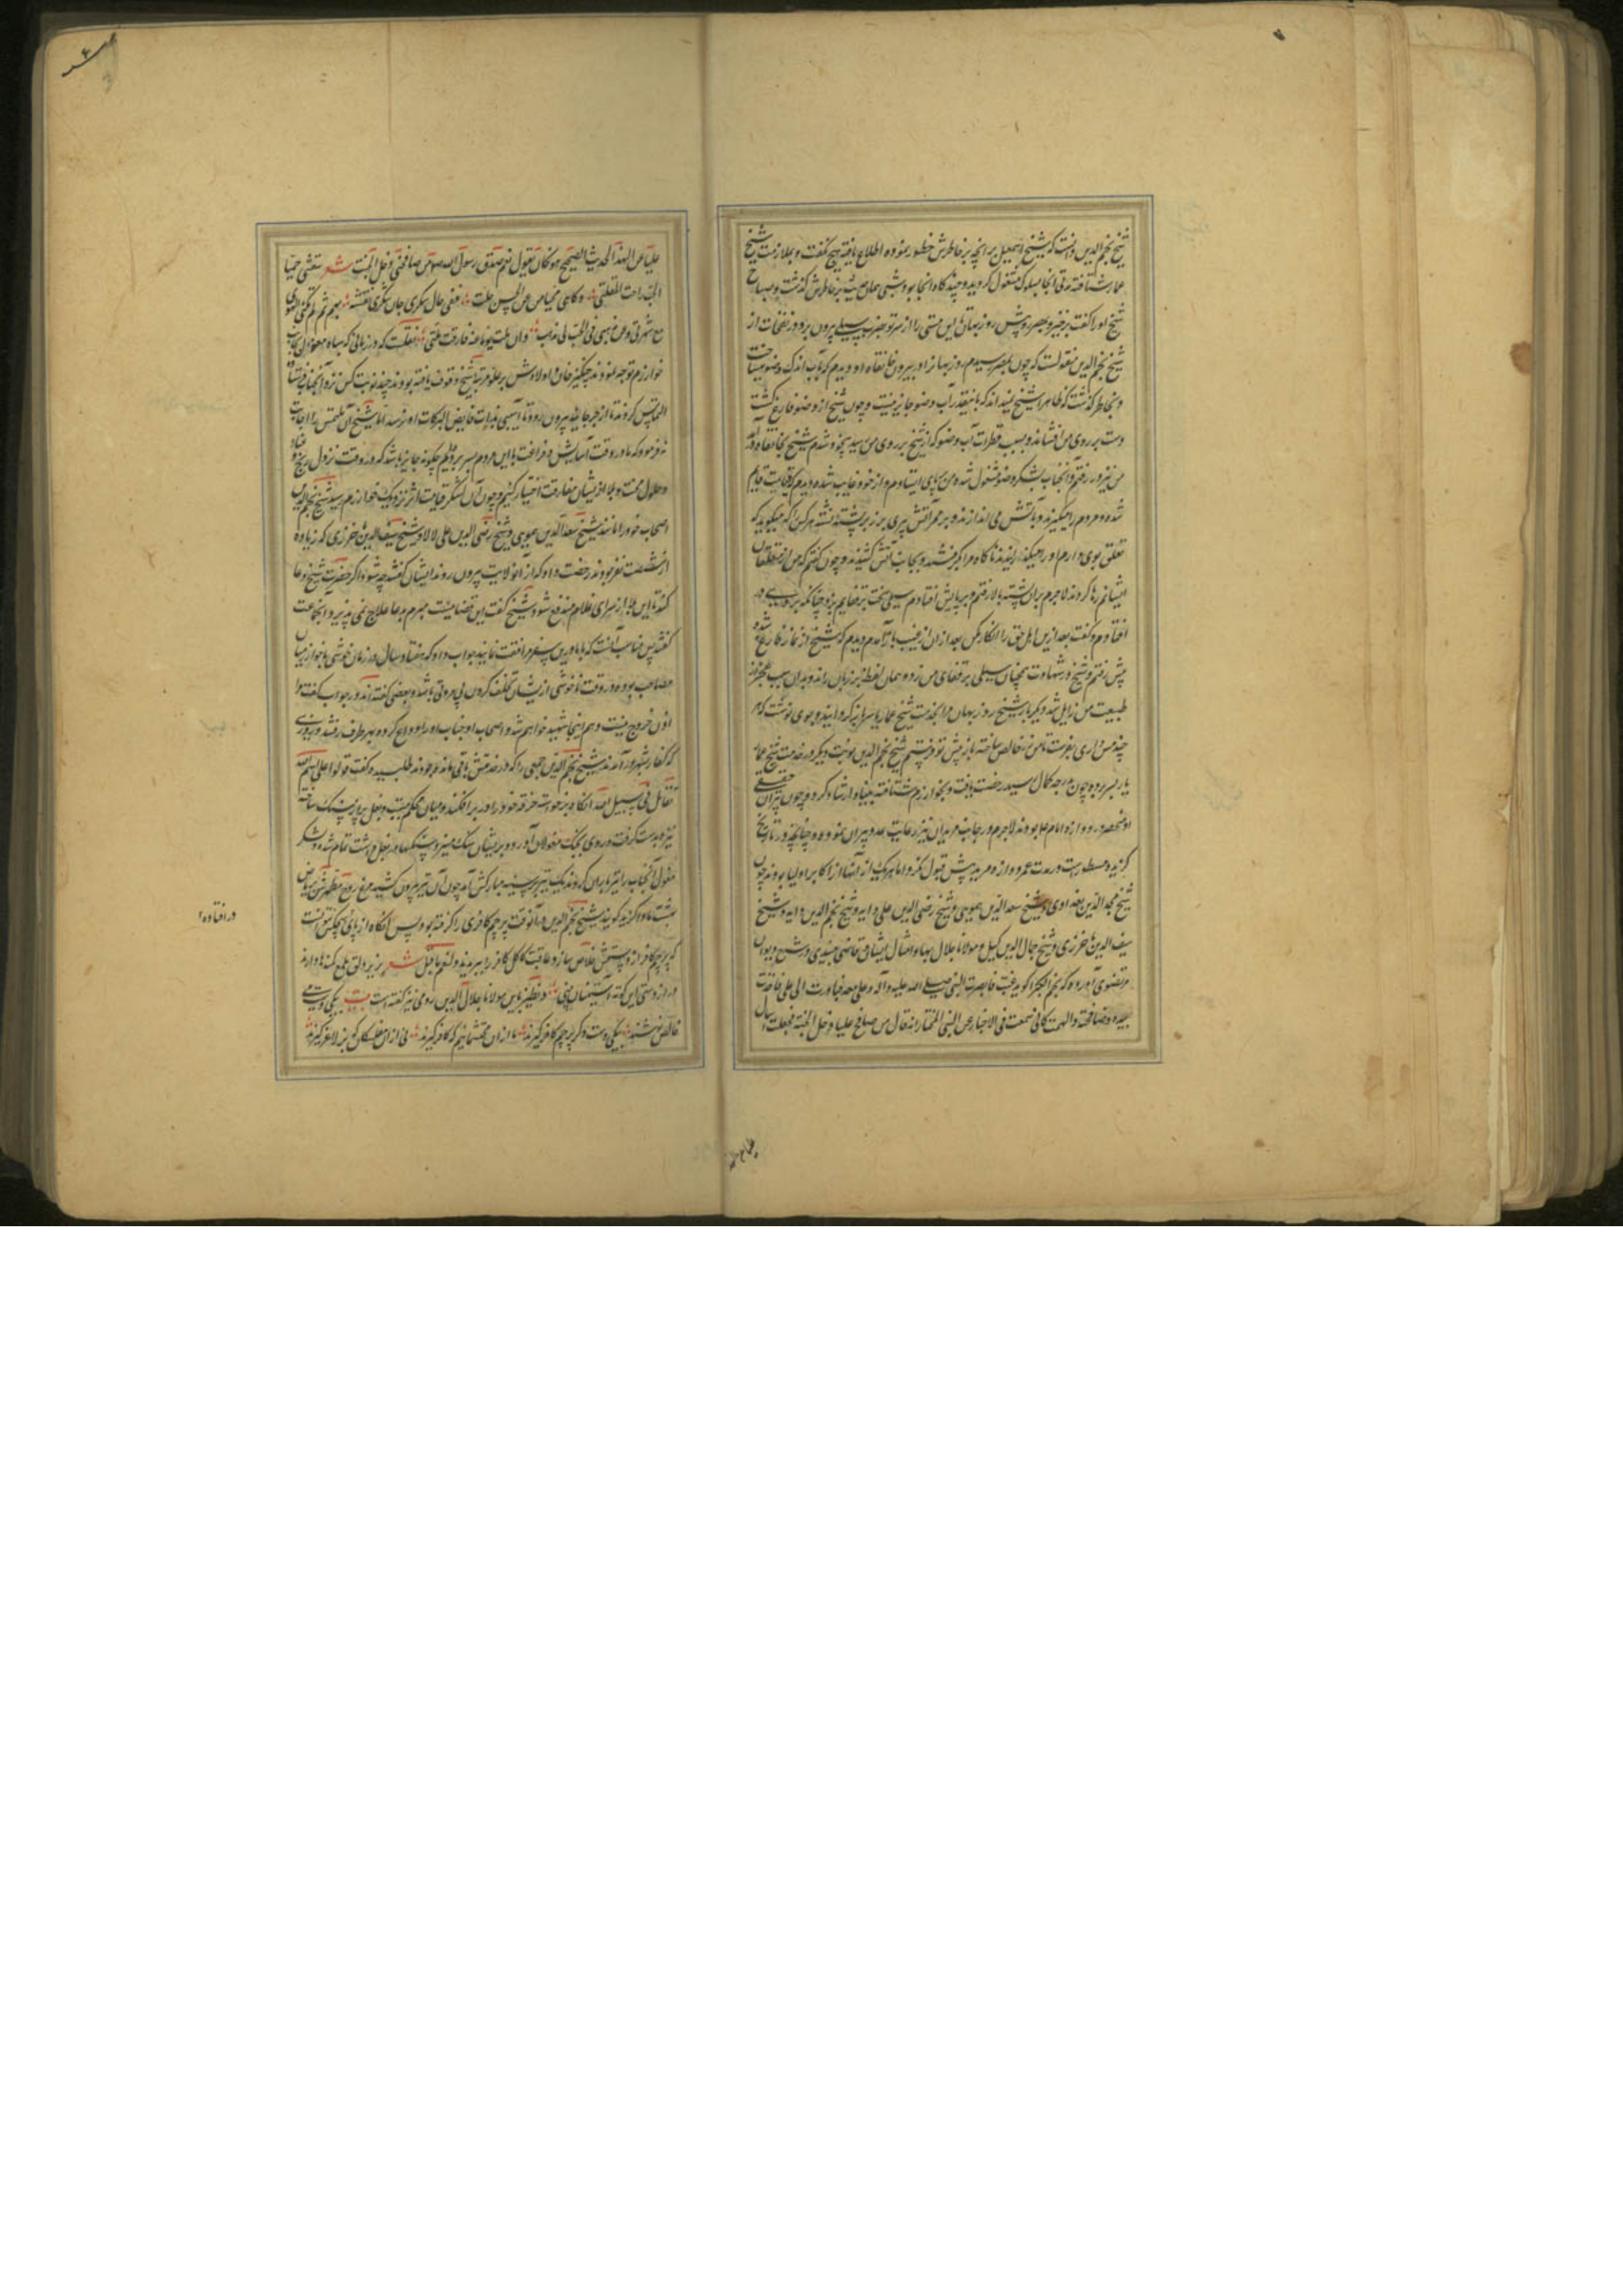 شیخ نجم الدین دانست که شیخ اسمعیل بر آنچه بر خاطرش خطور نموده اطلاع یافته هیچ نگفت و بملازمت شیخ
عمار شتافته مدتی آنجا بسلوک مشغول گردید و چند گاه آنجا بود و شبی همان بر خاطرش گذشت و صباح
شیخ او را گفت برخیز و بمصر رو پیش روزبهان تا این مستی را از سر تو بضرب سیلی بیرون برد و در نفحات از
شیخ نجم الدین منقولست که چون بمصر رسیدم روزبهان را در بیرون خانقاه او دیدم که بآب اندک وضو میساخت
و بخاطر گذشت که ظاهرا شیخ نمیداند که باینقدر آب وضو جایز نیست و چون شیخ از وضو فارغ گشت
دست بر روی من افشاند و بسبب قطرات آب وضو که از شیخ بر روی من رسید بیخود شدم شیخ بخانقاه درآمد
من نیز در رفتم و آنجناب بشکر وضو مشغول شده من بر پای ایستادم و از خود غایب شده دیدم که قیامت قایم
شده و مردم را میگیرند و بآتش می اندازند و بر ممر آتش پیری بر زبر پشته نشسته هر کس که میگوید که
تعلق بوی دارم او را میگذارند ناگاه مرا بگرفتند و بجانب آتش کشیدند و چون گفتم که من از متعلقان
ایشانم رها کردند لاجرم بران پشته بالا رفتم و بپایش افتادم سیلی سخت بر قفایم بزد چنانکه بر روی در
افتادم و گفت بعد ازین اهل حق را انکار مکن بعد از ان از غیب باز آمدم دیدم که شیخ از نماز فارغ شده
پیش رفتم و شیخ در شهادت همچنان سیلی بر قفای من زد و همان لفظ بر زبان راند و بدان سبب
طبیعت من زایل شد و دیگر باره شیخ روزبهان مرا بخدمت شیخ عمار یاسر بازگردانید و بوی نوشت که هر
چند مس داری بفرست تا من زر خالص ساخته باز پیش تو فرستم شیخ نجم الدین نوبت دیگر در خدمت شیخ عمار
یاسر بسر برده چون بدرجه کمال رسید رخصت یافت و بخوارزم شتافته بنیاد ارشاد کرد و چون پیران
او منحصر در دوازده امام بودند لاجرم در جانب مریدان نیز رعایت عدد پیران نموده و چنانچه در تاریخ
گزیده مسطورست در مدت عمر دوازده مرید بیش قبول نکرد اما هر یک از آنها از اکابر اولیا بودند چون
شیخ مجد الدین بغدادی و شیخ سعد الدین حمویی و شیخ رضی الدین علی و شیخ نجم الدین دایه و شیخ
سیف الدین باخرزی و شیخ جمال الدین کیل و مولانا جلال بهاء و امثال ایشان قاضی میبدی در شرح دیوان
مرتضوی آورده که نجم الکبرا گوید غبت فابصرت النبی صلی الله علیه و آله و علی معه فبادرت الی علی فاخذت
بیده و صافحته والهمت کانی سمعت فی الاخبار عن النبی المختار انه قال من صافح علیا دخل الجنة فجعلت اسال
علیا عن هذا الحدیث الصحیح هو فکان یقول نعم صدق رسول الله من صافحنی دخل الجنت شعر
مع شهرتی و عن مذهبی فی الحب لی مذهب و ان ملت یوما عنه فارقت ملتی نقلست که در زمانی که سپاه مغول بجانب
خوارزم توجه نمودند چنگیز خان و اولادش بر علو مرتبه شیخ وقوف یافته بودند چند نوبت کس نزد آنجناب فرستاده
التماس کردند تا از جرجانیه بیرون رود تا آسیبی بذات فایض البرکات او نرسد اما شیخ آن ملتمس را اجابت
نفرمود که ما در وقت آسایش و فراغت با این مردم بسر بردیم چگونه جایز باشد که در وقت نزول رنج و
و حلول محنت و بلا از ایشان مفارقت اختیار کنیم و چون آن لشکر قیامت اثر نزدیک خوارزم رسید شیخ نجم الدین
اصحاب خود را مانند شیخ سعد الدین حمویی و شیخ رضی الدین علی لالا و شیخ سیف الدین باخرزی که زیاده
از شصت نفر بودند رخصت داد که از آن ولایت بیرون روند ایشان گفتند چه شود اگر حضرت شیخ دعا
کند تا این بلا از سرای ظلام مندفع شود شیخ گفت این قضاییست مبرم بدعا علاج نمی پذیرد آنجماعت
گفتند پس مناسب آنست که با ما درین سفر موافقت نمایند جواب داد که هفتاد سال در زمان خوشی با خوارزمیان
مصاحب بوده در وقت ناخوشی از یشان تخلف کردن بی مروتی باشد و بعضی گفته اند در جواب گفت مرا
اذن خروج نیست و هم اینجا شهید خواهم شد و اصحاب او جناب او را وداع کرده بهر طرف رفتند و روزی
که کفار بشهر درآمدند شیخ نجم الدین جمعی را که در خدمتش باقی مانده بودند طلبید و گفت قوموا علی اسم الله
نقاتل فی سبیل الله آنگاه برخواست خرقه خود را در بر افکند و میان محکم ببست و بغل پر از سنگ ساخته
نیزه بدست گرفت و روی بجنگ مغولان آورد و بر ایشان سنگ میزد و سنگها در بغل داشت تمام شد و لشکر
مغول آنجناب را تیرباران کردند یک تیر بر سینه مبارکش آمد چون آن تیر بیرون کشید مرغ روح مطهرش بریاض
بهشت ماوا گزید گویند شیخ نجم الدین در آنوقت پرچم کافری را گرفته بود پس آنگاه از پای هیچکس نتوانست
که پرچم کافر از دستش خلاص سازد و عاقبت کاکل کافر را ببریدند و لنعم ما قیل شعر بزیر دلق ملمع کمندها دارند
دراز دستی این کوته آستینان بین و نظیر باین مولانا جلال الدین رومی نیز گفته است بیت بیکی دست می
خالص نوشند بیکی دست دگر پرچم کافر گیرند ما ازان محتشمانیم که ساغر گیرند نی از ان مفلسکان که بز لاغر گیرند
در افتاده